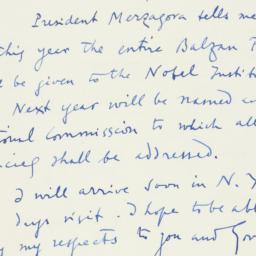 President Merzagora tells me
this year the entire Balzan
be given to the Nobel Instit
Next year will be named an
ional Commission to which all
shall be addressed.
I will arrive soon in N. Y
days visit. I hope to be abl
my respects to you and Gov